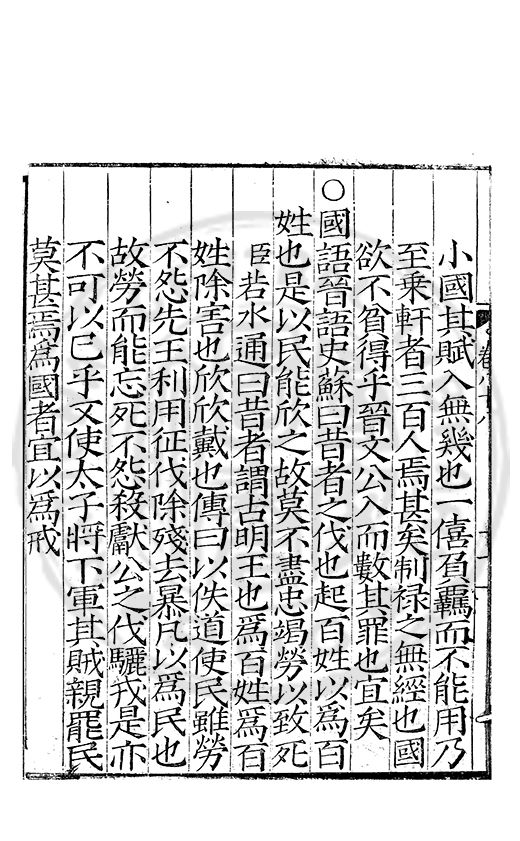 小國其賦入無幾也一僖負羈而不能用乃
至乗軒者三百人焉甚矣制禄之無經也國
欲不貧得乎晉文公入而數其罪也宜矣
○國語晉語史蘇曰昔者之伐也起百姓以為百
姓也是以民能欣之故莫不盡忠竭勞以致死
臣若水通曰昔者謂古明王也為百姓為百
姓除害也欣欣戴也傳曰以佚道使民雖勞
不怨先王利用征伐除殘去暴凡以為民也
故勞而能忘死不怨殺獻公之伐驪戎是亦
不可以已乎又使太子將下軍其賊親罷民
莫甚焉為國者宜以為戒